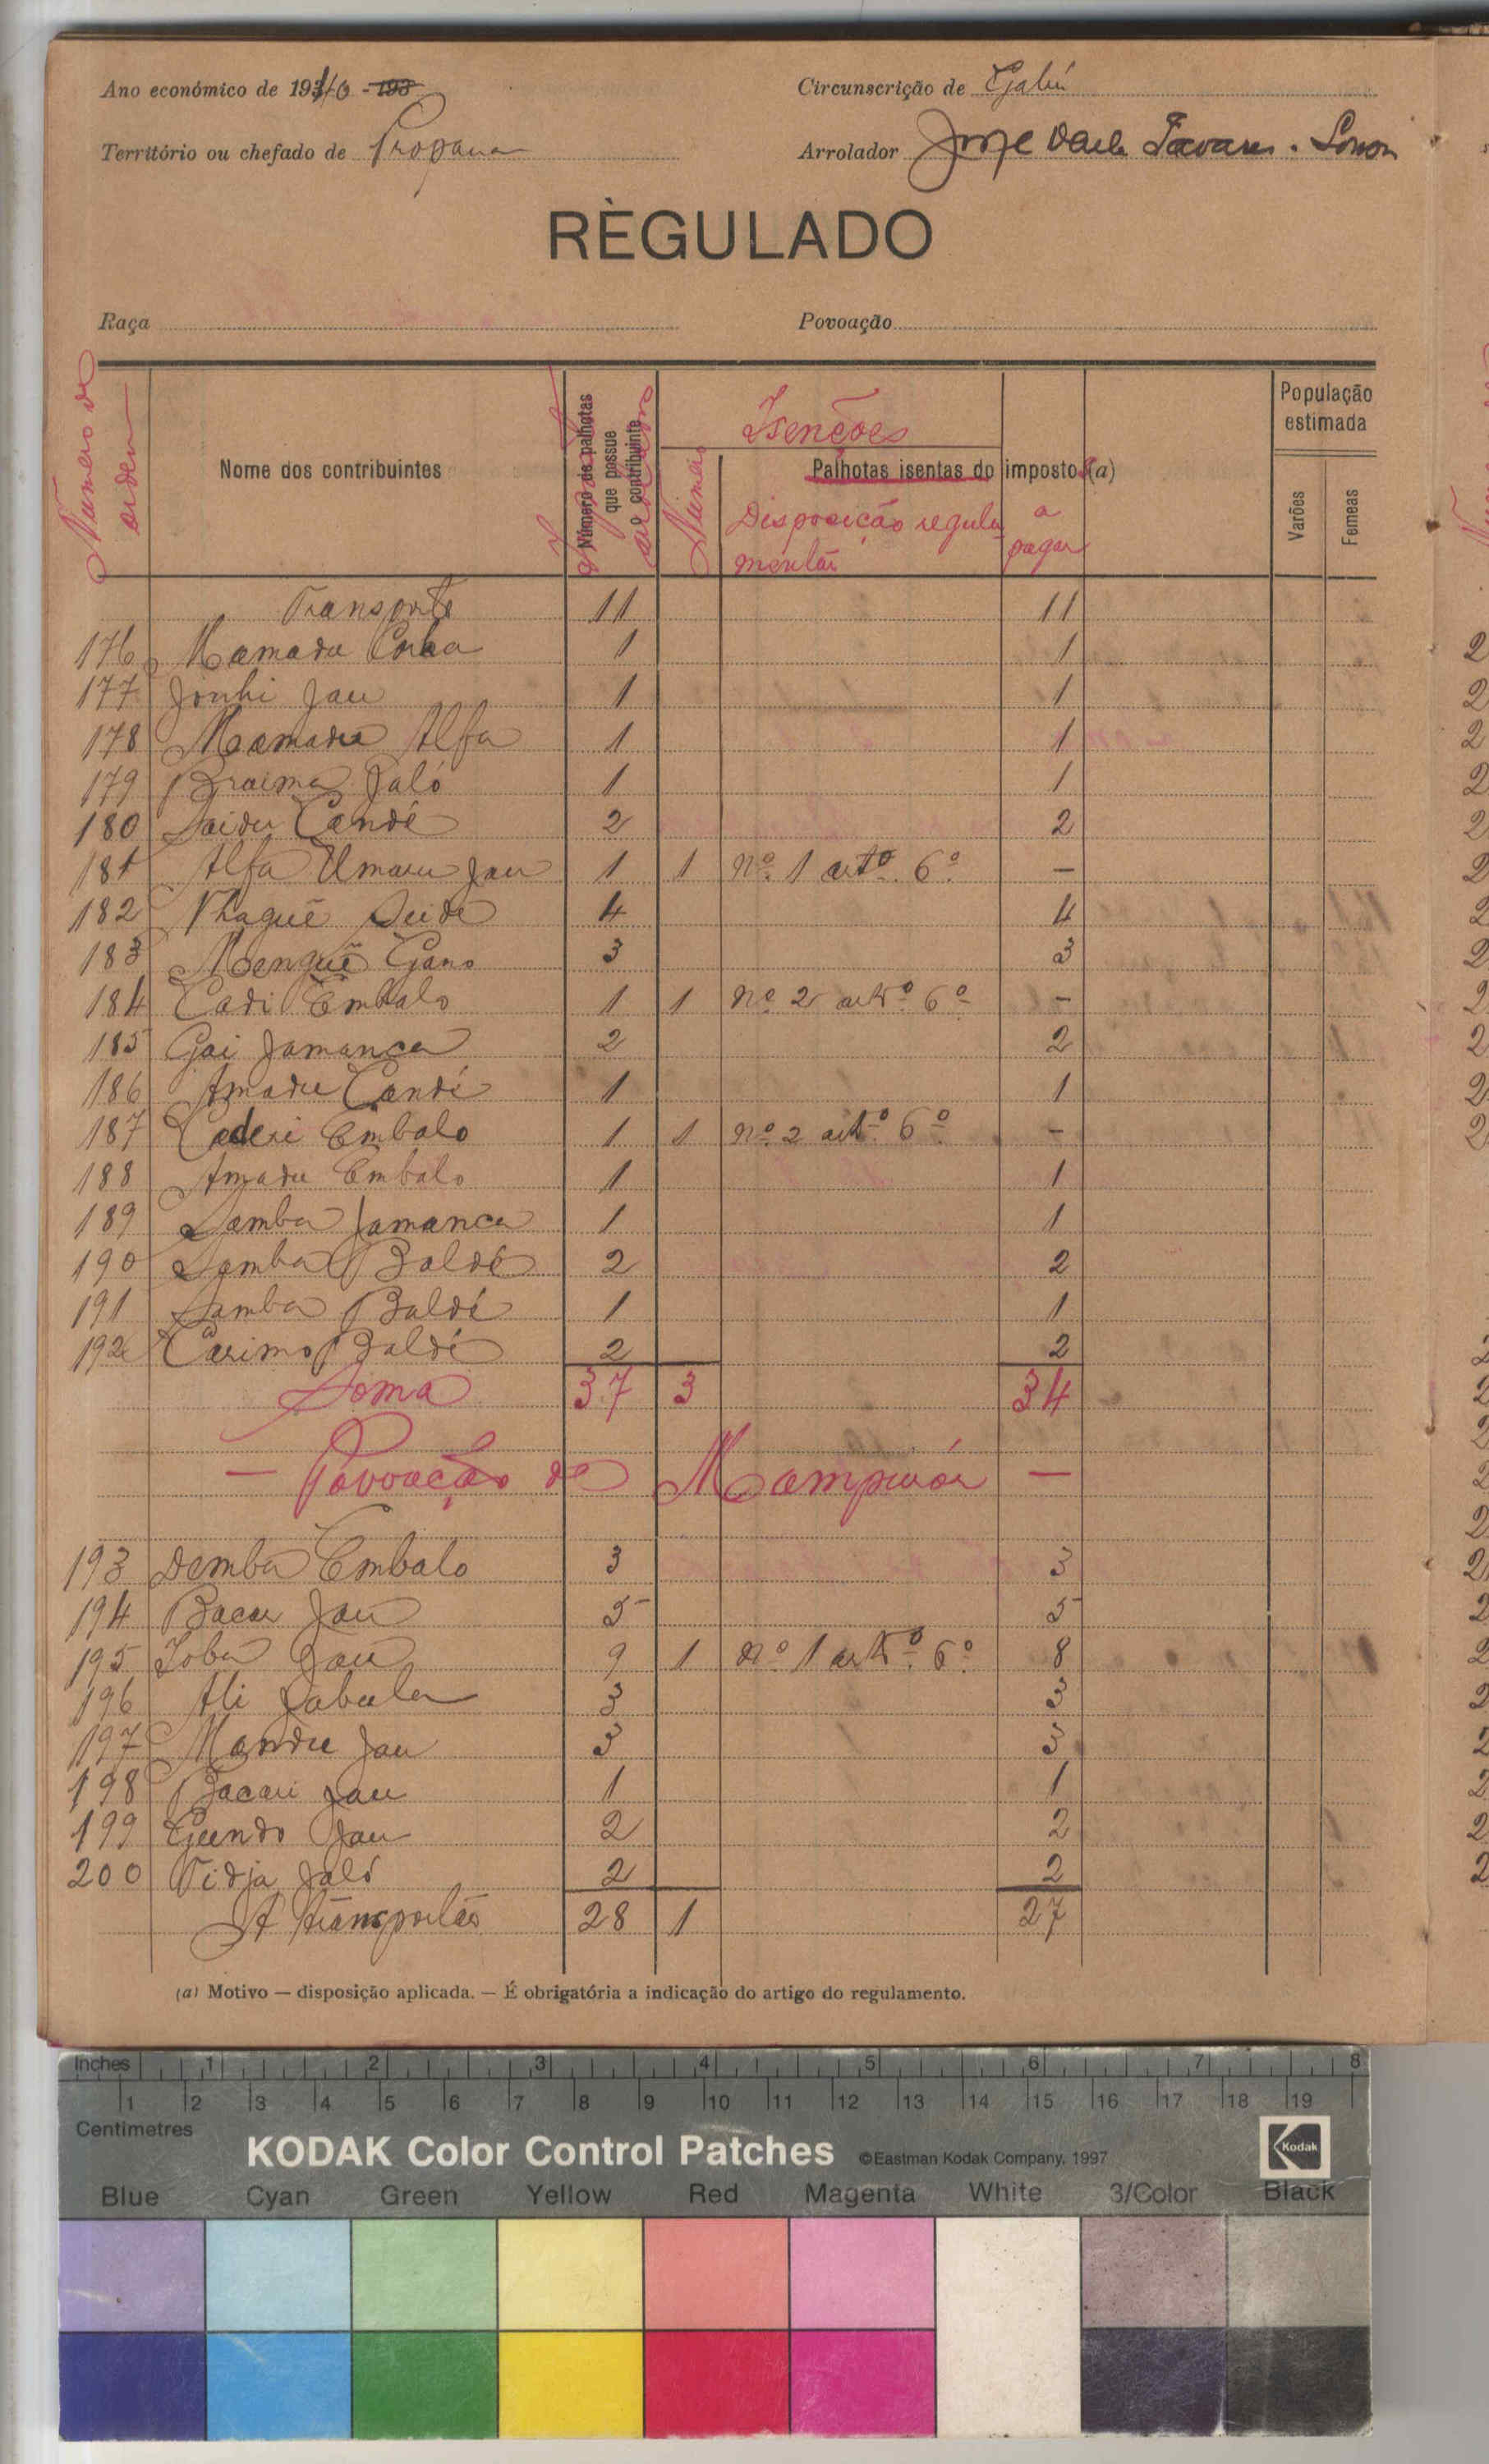 Ano económico de 1940 - 193
Circunscrição de Gabú
Território ou chefado de Propana
Arrolador Jorge Tavares
RÈGULADO
Raça
Povoação
Numero de ordem
Nome dos contribuintes
Número de palhotas que possue o contribuinte
Isenções
Palhotas isentas do imposto (a)
Numero
Disposição regulamentar
a pagar
População estimada
Varões
Femeas
Transporte 11 11
176 Mamadu 1 1
177 Jau 1 1
178 Mamadu Alfa 1 1
179 Braima Jaló 1 1
180 Saidu Candé 2 2
181 Alfa Umaru Jau 1 1 nº 1 artº 6º —
182 Seide 4 4
183 Gano 3 3
184 Cadi Embalo 1 1 nº 2 artº 6º -
185 Gai Jamanca 2 2
186 Amadu Candé 1 1
187 Embalo 1 1 nº 2 artº 6º -
188 Amadu Embalo 1 1
189 Samba Jamanca 1 1
190 Samba Baldé 2 2
191 Samba Baldé 1 1
192 Carimo Baldé 2 2
Soma 37 3 34
— Povoação de —
193 Demba Embalo 3 3
194 Bacar Jau 5 5
195 Jau 9 1 nº 1 artº 6º 8
196 Ali 3 3
197 Jau 3 3
198 Bacari Jau 1 1
199 Jau 2 2
200 Tidja Jaló 2 2
A transportar 28 1 27
(a) Motivo — disposição aplicada. — É obrigatória a indicação do artigo do regulamento.
Inches 1 2 3 4 5 6 7 8
1 2 3 4 5 6 7 8 9 10 11 12 13 14 15 16 17 18 19
Centimetres
KODAK Color Control Patches ©Eastman Kodak Company, 1997 Kodak
Blue Cyan Green Yellow Red Magenta White 3/Color Black